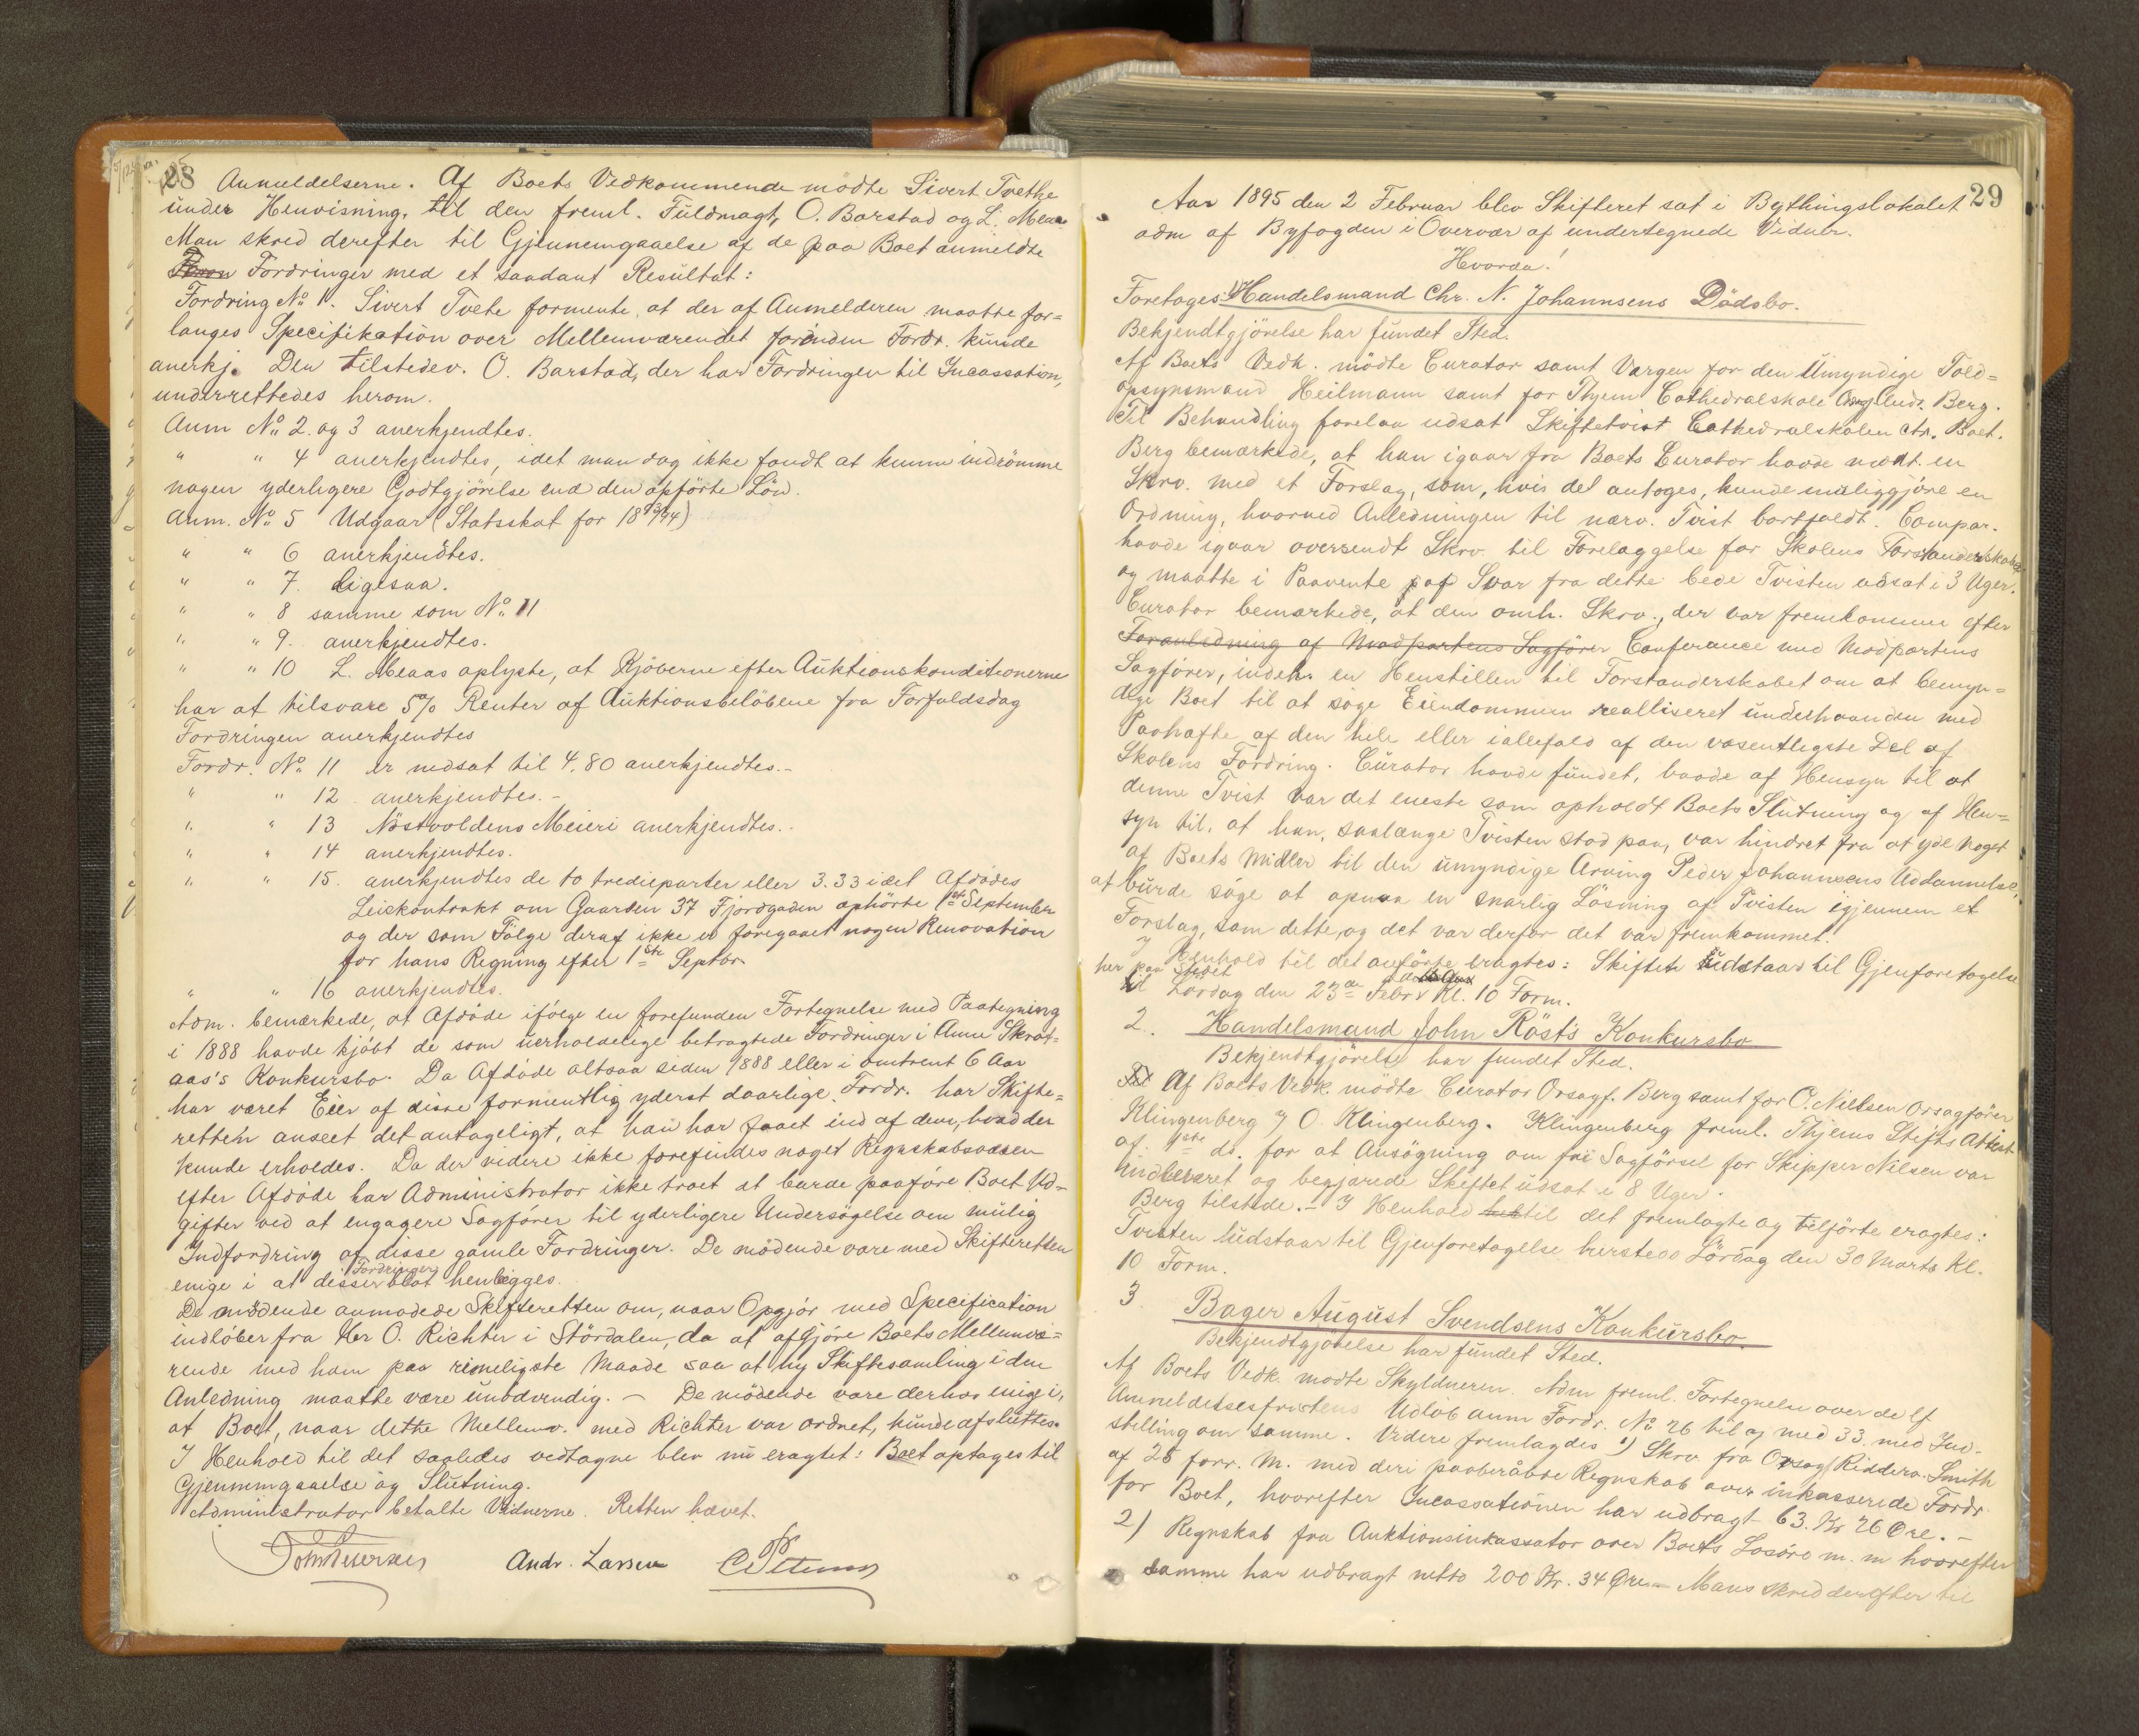 28 Anmeldelserne. Af Boets Vedkommende mödte Sivert Tvethe
under Henvisning til den freml. Fuldmagt, O. Barstad og L. Meaas
Man skred derefter til Gjennemgaaelse af de paa Boet anmeldte
Fordringer med et saadant Resultat:
Fordring No 1. Sivert Tvete formente, at der af Anmelderen maatte for=
langes Specifikation over Mellemværendet forinden Fordr. kunde
anerkj. Den tilstedev. O. Barstad, der har Fordringen til Incassation,
underrettedes herom.
Anm No 2 og 3 anerkjendtes.
" " 4 anerkjendtes, idet man dog ikke fandt at kunne indrömme
nogen yderligere Godtgjörelse end den opförte Lön.
Anm. No 5 Udgaar (Statsskat for 1893/94)
" " 6 anerkjendtes.
" " 7. ligesaa.
" " 8 samme som No 11
" " 9. anerkjendtes.
" " 10 L. Meaas oplyste, at Kjöberne efter Auktionskonditionerne
har at tilsvare 5% Renter af Auktionsbelöbene fra Forfaldsdag
Fordringen anerkjendtes
Fordr. No 11 er nedsat til 4.80 anerkjendtes.-
" " 12 anerkjendtes.-
" " 13 Nöstvoldens Meieri anerkjendtes.-
" " 14 anerkjendtes.
" " 15. anerkjendtes de to trediеparter eller 3.33 idet Afdödes
Leiekontrakt om Gaarden 37 Fjordgaden ophörte 1ste September
og der som Fölge deraf ikke er foregaaet nogen Renovation
for hans Regning efter 1ste Septbr.
" " 16 anerkjendtes.
Adm. bemærkede, at Afdöde ifölge en forefunden Fortegnelse med Paategning
i 1888 havde kjöbt de som uerholdelige betragtede Fordringer i Anne Skrat=
aas's Konkursbo. Da Afdöde altsaa siden 1888 eller i omtrent 6 Aar
har været Eier af disse formentlig yderst daarlige Fordr. har Skifte=
retten anseet det antageligt, at han har faaet ind af dem, hvad der
kunde erholdes. Da der videre ikke forefindes noget Regnskabsvæsen
efter Afdöde har Administrator ikke troet at burde paaföre Boet Ud=
gifter ved at engagere Sagförer til yderligere Undersögelse om mulig
Indfordring af disse gamle Fordringer. De mödende vare med Skifteretten
enige i at disse Fordringer blot henlægges.
De mödende anmodede Skifteretten om, naar Opgjör med Specification
indlöber fra Hr O. Richter i Stördalen, da at afgjöre Boets Mellemvæ=
rende med ham paa rimeligste Maade saa at ny Skiftesamling i den
Anledning maatte være unödvendig. - De mödende vare derhos enige i,
at Boet, naar dette Mellemv. med Richter var ordnet, kunde afsluttes.
I Henhold til det saaledes vedtagne blev nu eragtet: Boet optages til
Gjennemgaaelse og Slutning.
Administrator betalte Vidnerne. Retten hævet.
Andr. Larsen
29
Aar 1895 den 2 Februar blev Skifteret sat i Bythingslokalet
adm af Byfogden i Overvær af undertegnede Vidner.
Hvorda!
Foretoges 1) Handelsmand Chr. N. Johannsens Dödsbo.
Bekjendtgjörelse har fundet Sted.
Af Boets Vedk. mödte Curator samt Værgen for den Umyndige Told=
opsynsmand Heilmann samt for Thjem Cathedralskole Berg.
Til Behandling forelaa udsat Skiftetvist Cathedralskolen ctr. Boet.
Berg bemærkede, at han igaar fra Boets Curator havde modt. en
Skrv. med et Forslag, som, hvis det antoges, kunde muliggjöre en
Ordning, hvorved Anledningen til nærv. Tvist bortfaldt. Compar.
havde igaar oversendt Skrv. til Forelæggelse for Skolens Forstanderskab
og maatte i Paavente af Svar fra dette bede Tvisten udsat i 3 Uger.
Curator bemærkede, at den omh. Skrv., der var fremkommen efter
Foranledning af Modpartens Sagförer Conference med Modpartens
Sagförer, indeh. en Henstillen til Forstanderskabet om at bemyn=
dige Boet til at söge Eiendommen realliseret underhaanden med
Paahæfte af den hele eller iallefald af den væsentligste Del af
Skolens Fordring. Curator havde fundet, baade af Hensyn til at
denne Tvist var det eneste som opholdt Boets Slutning og af Hen=
syn til, at han, saalænge Tvisten stod paa, var hindret fra at yde noget
af Boets Midler til den umyndige Arving Peder Johannsens Uddannelse,
at burde söge at opnaa en snarlig Lösning af Tvisten igjennem et
Forslag, som dette, og det var derfor det var fremkommet.
I Henhold til det anförte eragtes: Skiftet udstaar til Gjenforetagelse
her paa Stedet
Lördag den 23de Febr. Kl. 10 Form.
2. Handelsmand John Röst's Konkursbo
Bekjendtgjörelse har fundet Sted.
Af Boets Vedk. mödte Curator Orsagf. Berg samt for O. Nielsen Orsagförer
Klingenberg v O. Klingenberg. Klingenberg freml. Thjems Stifts Attest
af 1ste ds. for at Ansögning om fri Sagförsel for Skipper Nilsen var
indleveret og begjærede Skiftet udsat i 8 Uger.
Berg tilstede. - I Henhold til det fremlagte og tilförte eragtes:
Tvisten udstaar til Gjenforetagelse hersteds Lördag den 30 Marts Kl.
10 Form.
3. Bager August Svendsens Konkursbo.
Bekjendtgjörelse har fundet Sted.
Af Boets Vedk mödte Skyldneren. Adm freml. Fortegnelse over de ef
Anmeldelsesfristens Udlöb anm Fordr. No 26 til og med 33. med Ind-
stilling om samme. Videre fremlagdes 1) Skrv. fra Orsagf Ridderv. Smith
af 25 forr. M. med deri paaberåbte Regnskab over inkasserede Fordr.
for Boet, hvorefter Incassationen har udbragt 63. Kr 26 Öre. -
2) Regnskab fra Auktionsinkassator over Boets Lösöre m. m hvorefter
samme har udbragt netto 200 Kr. 34 Öre. - Man skred derefter til